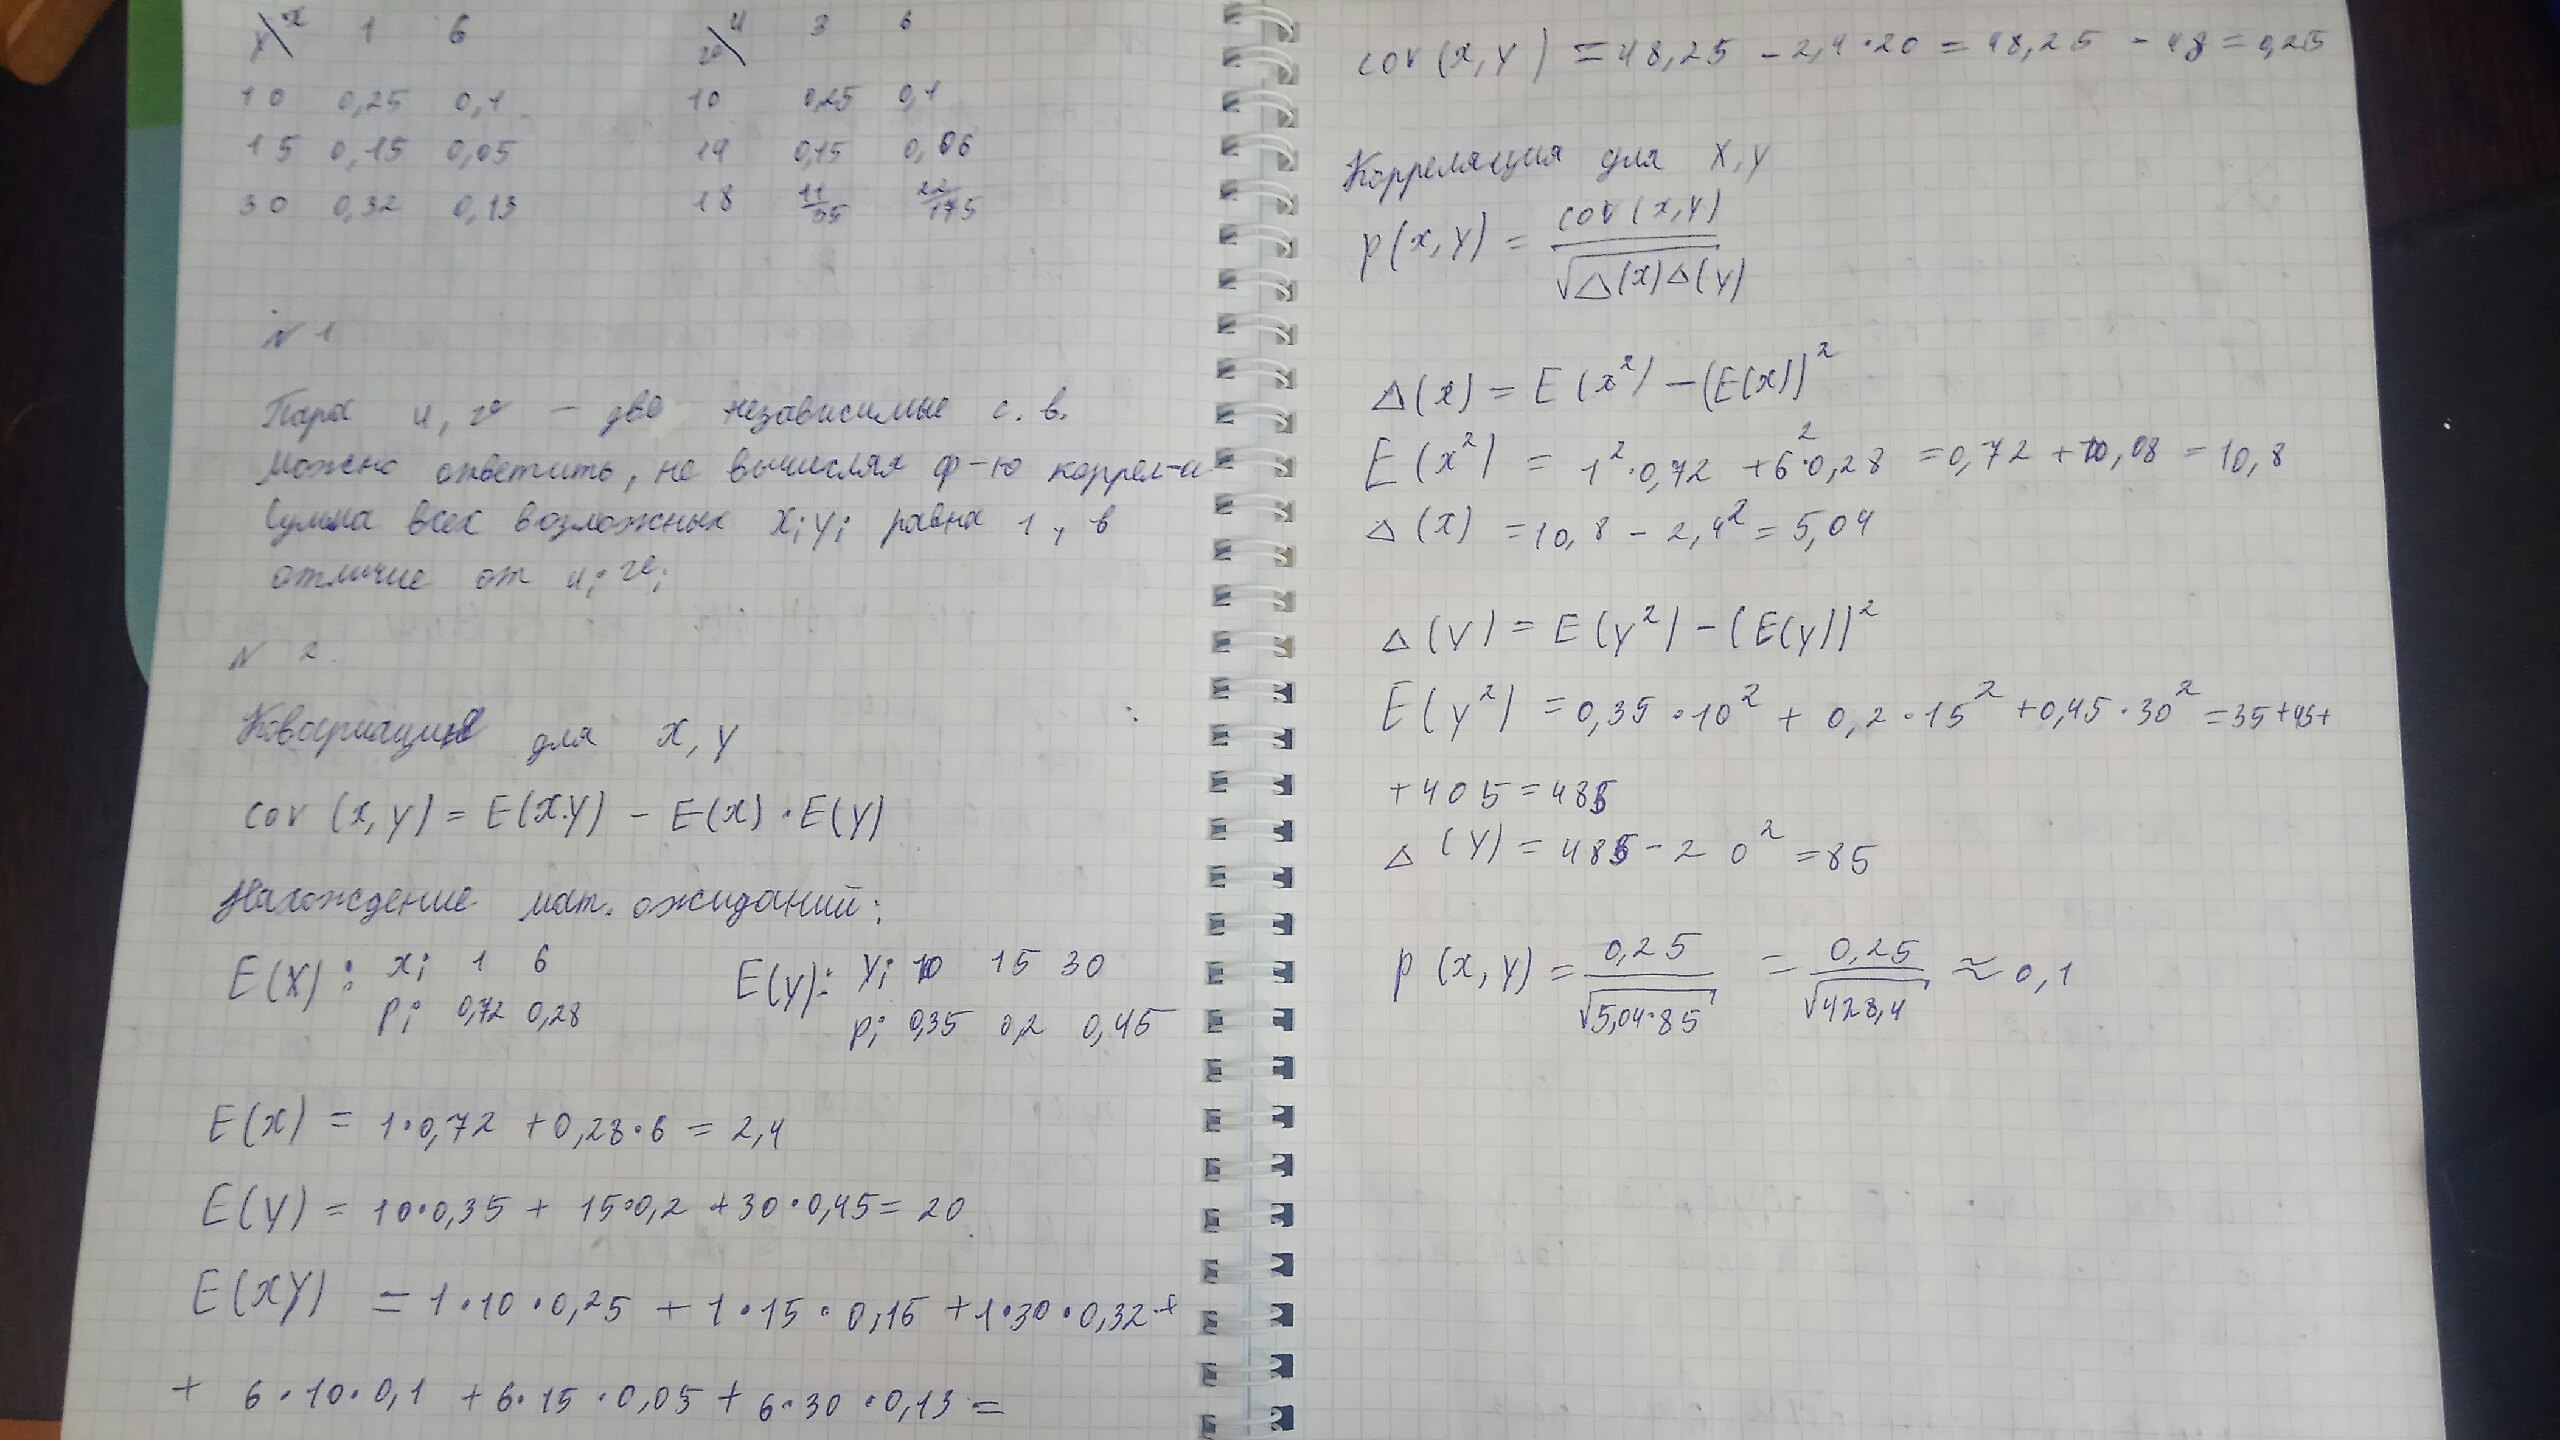 y\x 1 6
10 0,25 0,1
15 0,15 0,05
30 0,32 0,13
v\u 3 6
10 0,25 0,1
14 0,15 0,06
18 22/175
N 1
Пара u, v – две независимые с. в.
можно ответить, не вычисляя ф-ю коррел-и
Сумма всех возможных xᵢ yᵢ равна 1, в
отличие от uᵢ vᵢ
N 2.
Ковариация для x, y
cov (x, y) = E(x.y) – E(x) · E(y)
Нахождение мат. ожиданий:
E(x): xᵢ 1 6
pᵢ 0,72 0,28
E(y): yᵢ 10 15 30
pᵢ 0,35 0,2 0,45
E(x) = 1·0,72 + 0,28·6 = 2,4
E(y) = 10·0,35 + 15·0,2 + 30·0,45 = 20
E(xy) = 1·10·0,25 + 1·15·0,15 + 1·30·0,32 +
+ 6·10·0,1 + 6·15·0,05 + 6·30·0,13 =
cov (x, y) = 48,25 – 2,4·20 = 48,25 – 48 = 0,25
Корреляция для x, y
p(x, y) = cov(x,y) / √Δ(x)Δ(y)
Δ(x) = E(x²) – (E(x))²
E(x²) = 1²·0,72 + 6²·0,28 = 0,72 + 10,08 = 10,8
Δ(x) = 10,8 – 2,4² = 5,04
Δ(y) = E(y²) – (E(y))²
E(y²) = 0,35·10² + 0,2·15² + 0,45·30² = 35 + 45 +
+ 405 = 485
Δ(y) = 485 – 20² = 85
p(x, y) = 0,25 / √5,04·85 = 0,25 / √428,4 ≈ 0,1